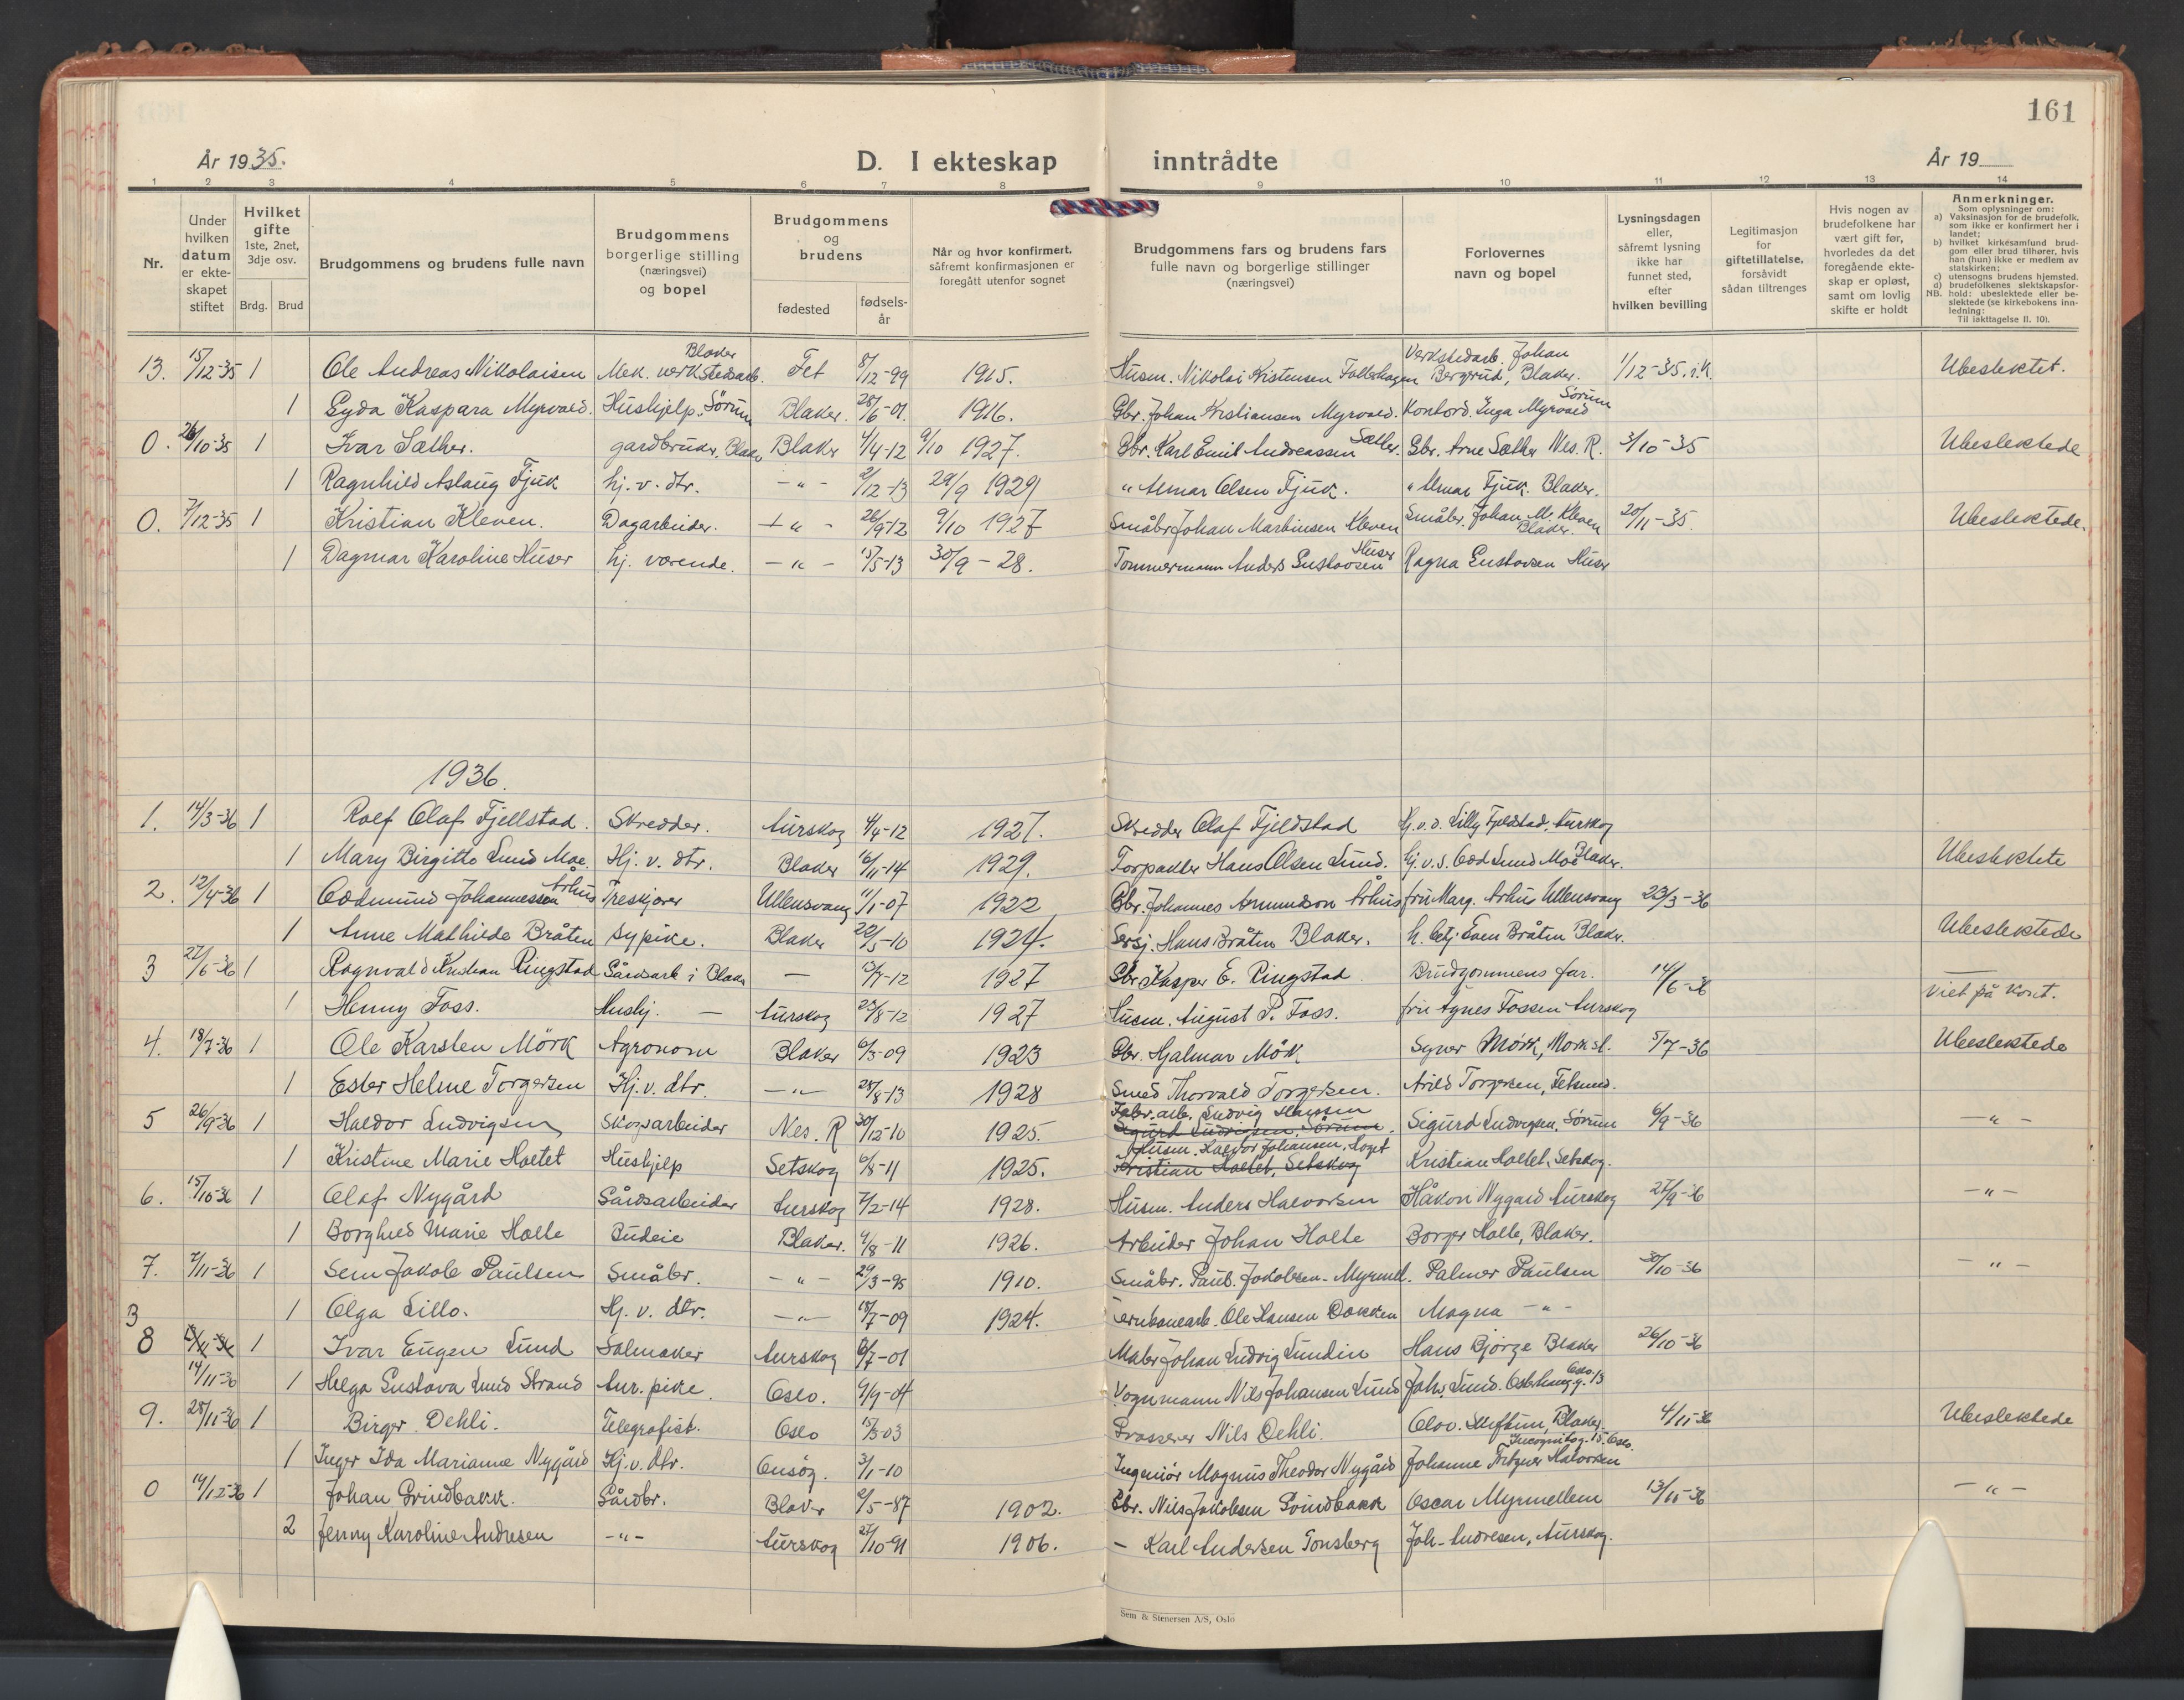 161
År 1935.
D. I ekteskap inntrådte
År 19
1 2 3 4 5 6 7 8 9 10 11 12 13 14
Nr.
Under hvilken datum er ekteskapet stiftet
Hvilket gifte 1ste, 2net, 3dje osv.
Brdg. Brud
Brudgommens og brudens fulle navn
Brudgommens borgerlige stilling (næringsvei) og bopel
Brudgommens og brudens
fødested
fødsels-år
Når og hvor konfirmert, såfremt konfirmasjonen er foregått utenfor sognet
Brudgommens fars og brudens fars fulle navn og borgerlige stillinger (næringsvei)
Forlovernes navn og bopel
Lysningsdagen eller, såfremt lysning ikke har funnet sted, efter hvilken bevilling
Legitimasjon for giftetillatelse, forsåvidt sådan tiltrenges
Hvis nogen av brudefolkene har vært gift før, hvorledes da det foregående ekteskap er opløst, samt om lovlig skifte er holdt
Anmerkninger.
Som oplysninger om:
a) Vaksinasjon for de brudefolk, som ikke er konfirmert her i landet;
b) hvilket kirkesamfund brudgom eller brud tilhører, hvis han (hun) ikke er medlem av statskirken;
c) utensogns brudens hjemsted.
d) brudefolkenes slektskapsforhold:
NB. ubeslektede eller beslektede (se kirkebokens innledning:
Til iakttagelse II. 10).
13. 15/12-35 1 Ole Andreas Nikolaisen Mek. verkstedsarb. Blaker Fet 8/12-99 1915. Husm. Nikolai Kristensen Verkstedarb. Johan Bergrud, Blaker. 1/12-35. i.k. Ubeslektet.
1 Gyda Kaspara Myrvold. Hushjelp. Sörum Blaker. 28/6-01. 1916. Gbr. Johan Kristiansen Myrvold. Kontord. Inga Myrvold Sörum
0. 26/10-35 1 Ivar Sæther. gardbruker, Blaker Blaker 4/4-12 9/10 1927. Gbr. Karl Emil Andreassen Sæther. Gbr. Arne Sæther Nes. R. 3/10-35 Ubeslektede
1 Ragnhild Aslaug Fjuk hj. v. dtr. - " - 2/12-13 29/9 1929 " Almar Olsen Fjuk. " Almar Fjuk. Blaker.
0. 7/12-35 1 Kristian Kleven. Dagarbeider. - " - 26/9-12 9/10 1927 Småbr. Johan Martinsen Kleven Småbr. Johan M. Kleven Blaker. 20/11-35. Ubeslektede.
1 Dagmar Karoline Huser hj. værende. - " - 15/5-13 30/9-28. Tømmermann Anders Gustavsen Huser Ragna Gustavsen Huser
1936.
1. 14/3-36 1 Rolf Olaf Fjellstad. Skredder. Aurskog 4/4-12 1927. Skredder Olaf Fjeldstad Hj.v.d. Lilly Fjeldstad. Aurskog
1 Mary Birgitte Lund Moe. Hj. v. dtr. Blaker 16/11-14 1929. Forpakter Hans Olsen Lund. hj. v. s. Odd Lund Moe Blaker. Ubeslektete
2. 12/4-36 1 Oddmund Johannessen Århus Treskjærer Ullensvang 11/1-07 1922 Gbr. Johannes Amundson Århus fru Marg. Århus Ullensvang 23/3-36
1 Anne Mathilde Bråten sypike. Blaker 22/5-10 1924. Sersj. Hans Bråten Blaker. h. betj. Even Bråten Blaker. Ubeslektede
3 27/6-36 1 Ragnvald Kristian Ringstad Gårdsarb i Blaker — 13/7-12 1927 Gbr. Kasper E. Ringstad Brudgommens far. 14/6-36
1 Henny Foss. Hushj. — Aurskog 23/8-12 1927 Husm. August P. Foss. fru Agnes Fossen Aurskog Viet på kont.
4. 18/7-36 1 Ole Karsten Mörk Agronom Blaker 6/3-09 1923 Gbr. Hjalmar Mörk Syver Mörk, Mork st. 5/7-36 Ubeslektede
1 Ester Helene Torgersen Hj. v. dtr. - " - 28/8-13 1928 Smed Thorvald Torgersen. Arild Torgersen, Fetsund.
5 26/9-36 1 Haldor Ludvigsen Skogsarbeider Nes. R 30/12-10 1925. Fabr. arb. Ludvig Hanssen Sigurd Ludvigsen, Sörum. Sigurd Ludvigsen, Sörum 6/9-36 - " -
1 Kristine Marie Holtet Hushjelp Setskog 6/8-11 1925. Husm. Halvor Johansen, Kristian Holtet, Setskog Kristian Holtet, Setskog.
6. 15/10-36 1 Olaf Nygård Gårdsarbeider Aurskog 7/2-14 1928. Husm. Anders Halvorsen Håkon Nygård Aurskog 27/9-36 - " -
1 Borghild Marie Holle Budeie Blaker. 9/8-11 1926. Arbeider Johan Holte Borger Holle, Blaker.
7. 7/11-36 1 Sem Jakob Paulsen Småbr. - " - 29/3-95 1910. Småbr. Paul. Jakobsen - Palmer Paulsen 30/10-36 - " -
3 1 Olga Lillo. Hj. v. dtr. - " - 18/7-09 1924. Ole Hansen Dokken Magna - " -
8 14/11-36 1 Ivar Eugen Lund Salmaker Aurskog 6/7-01 Maler Johan Ludvig Lundin Hans Bjørge Blaker 26/10-36
1 Helga Gustava Lund Strand Aur. pike. Oslo. 9/9-04 Vognmann Nils Johansen Lund Joh. Lund. Osterhausg. 13 Oslo.
9. 28/11-36 1 Birger Oehli. Telegrafist. Oslo 15/3-03 Nils Oehli. Olav. Blaker. 4/11-36 Ubeslektede
1 Inger Ida Marianne Nygård Hj. v. dtr. Onsöy. 3/1-10 Ingeniör Magnus Theodor Nygård Johanne Fritzner Halvorsen Incognitog. 15. Oslo.
0 14/12-36 1 Johan Grindbakk. Gårdbr. Blaker 2/5-87 1902. Gbr. Nils Jakobsen Grindbakk Oscar Myrmellem 13/11-36 - " -
2 Jenny Karoline Andresen - " - Aurskog 27/10-91 1906. - Karl Andersen Tonsberg Joh. Andresen, Aurskog.
Sem & Stenersen A/S, Oslo